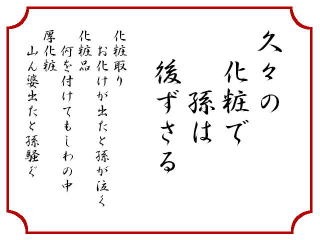 久々の
化粧で
孫は
後ずさる
化粧取り
お化けが出たと孫が泣く
化粧品
何を付けてもしわの中
厚化粧
山ん婆出たと孫騒ぐ